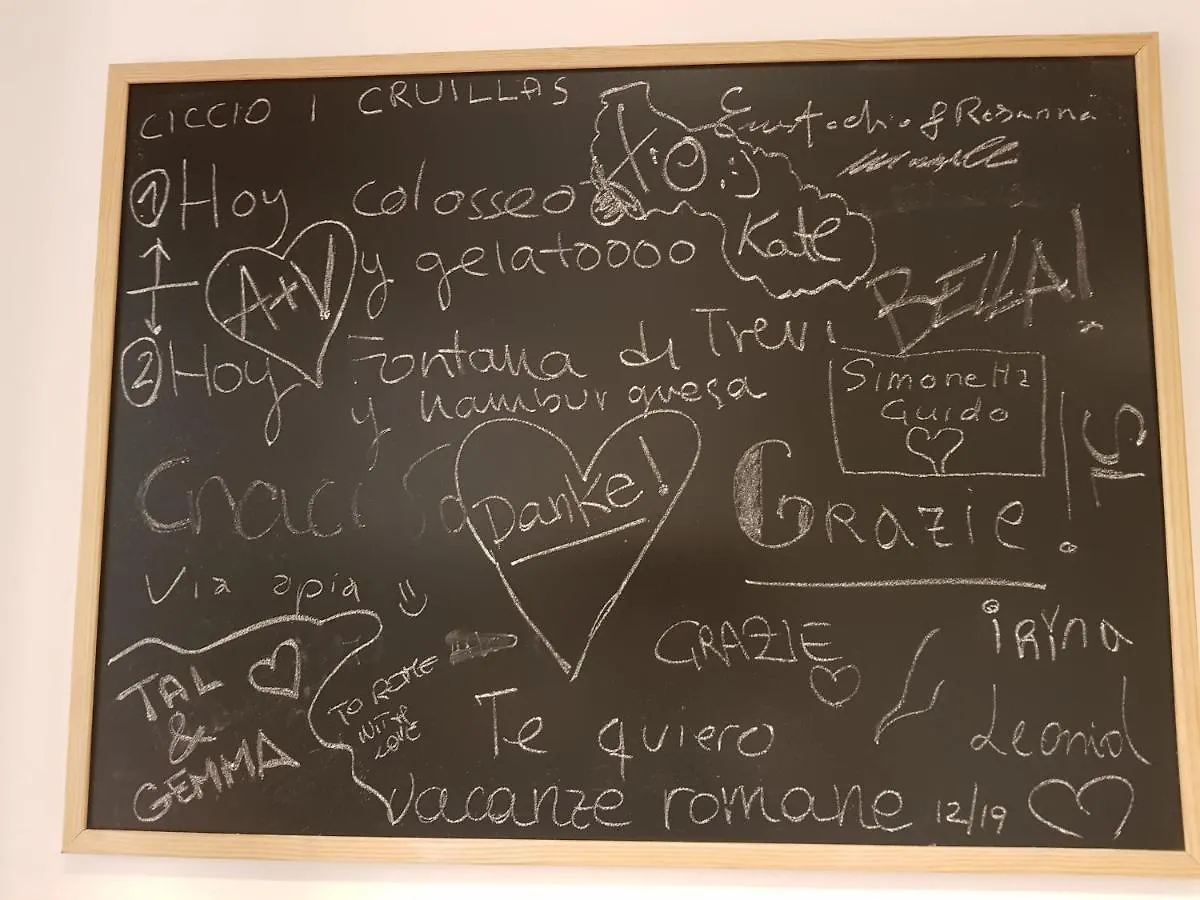 CICCIO I CRUILLAS
& Rosanna
① Hoy colosseo
y gelatoooo
Kate
A+V
BELLA!
② Hoy Fontana di Trevi
y hamburguesa
Simonetta
Guido
TS
Danke!
Grazie!
Via apia
GRAZIE
iRYna
Leonid
TAL
&
GEMMA
TO ROME
WITH
LOVE
Te quiero
vacanze romane 12/19